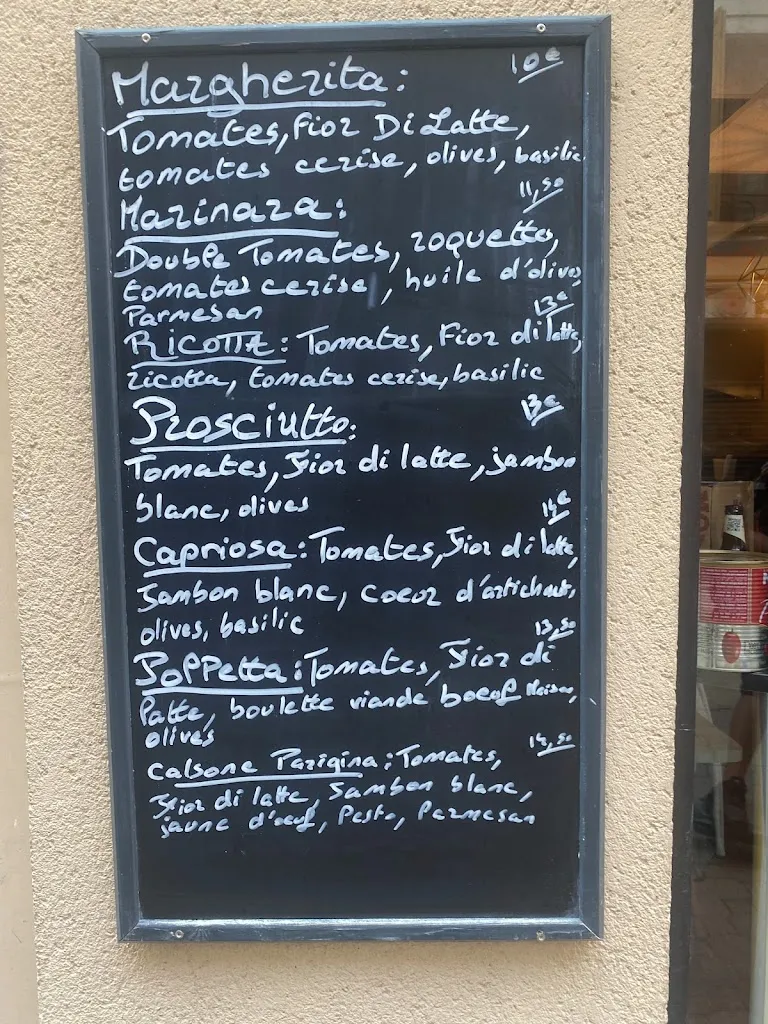 Margherita: 10€
Tomates, Fior Di Latte,
tomates cerise, olives, basilic
Marinara: 11,50
Double Tomates, roquette,
tomates cerise, huile d'olive,
Parmesan 13€
RICOTTA: Tomates, Fior di latte,
ricotta, tomates cerise, basilic
Prosciutto: 13€
Tomates, Fior di latte, jambon
blanc, olives 14€
Capriosa: Tomates, Fior di latte,
Jambon blanc, coeur d'artichaut,
olives, basilic 13,50
Polpetta: Tomates, Fior di
Latte, boulette viande boeuf Maison,
olives 14,50
Calsone Parigina: Tomates,
Fior di latte, Jambon blanc,
jaune d'oeuf, Pesto, Parmesan